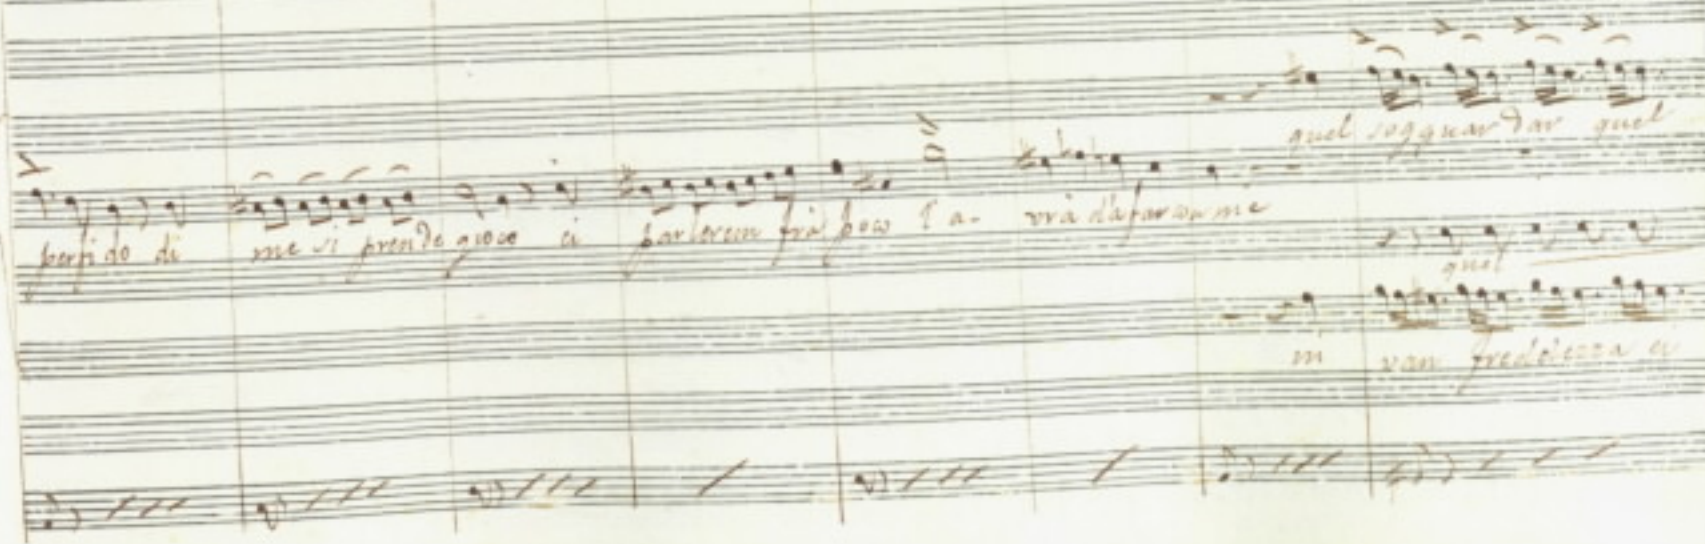 quel sogguardar quel
perfido di me si prende gioco ci parlerem frà poco l'avrà da far con me
quel
in van freddezza ei